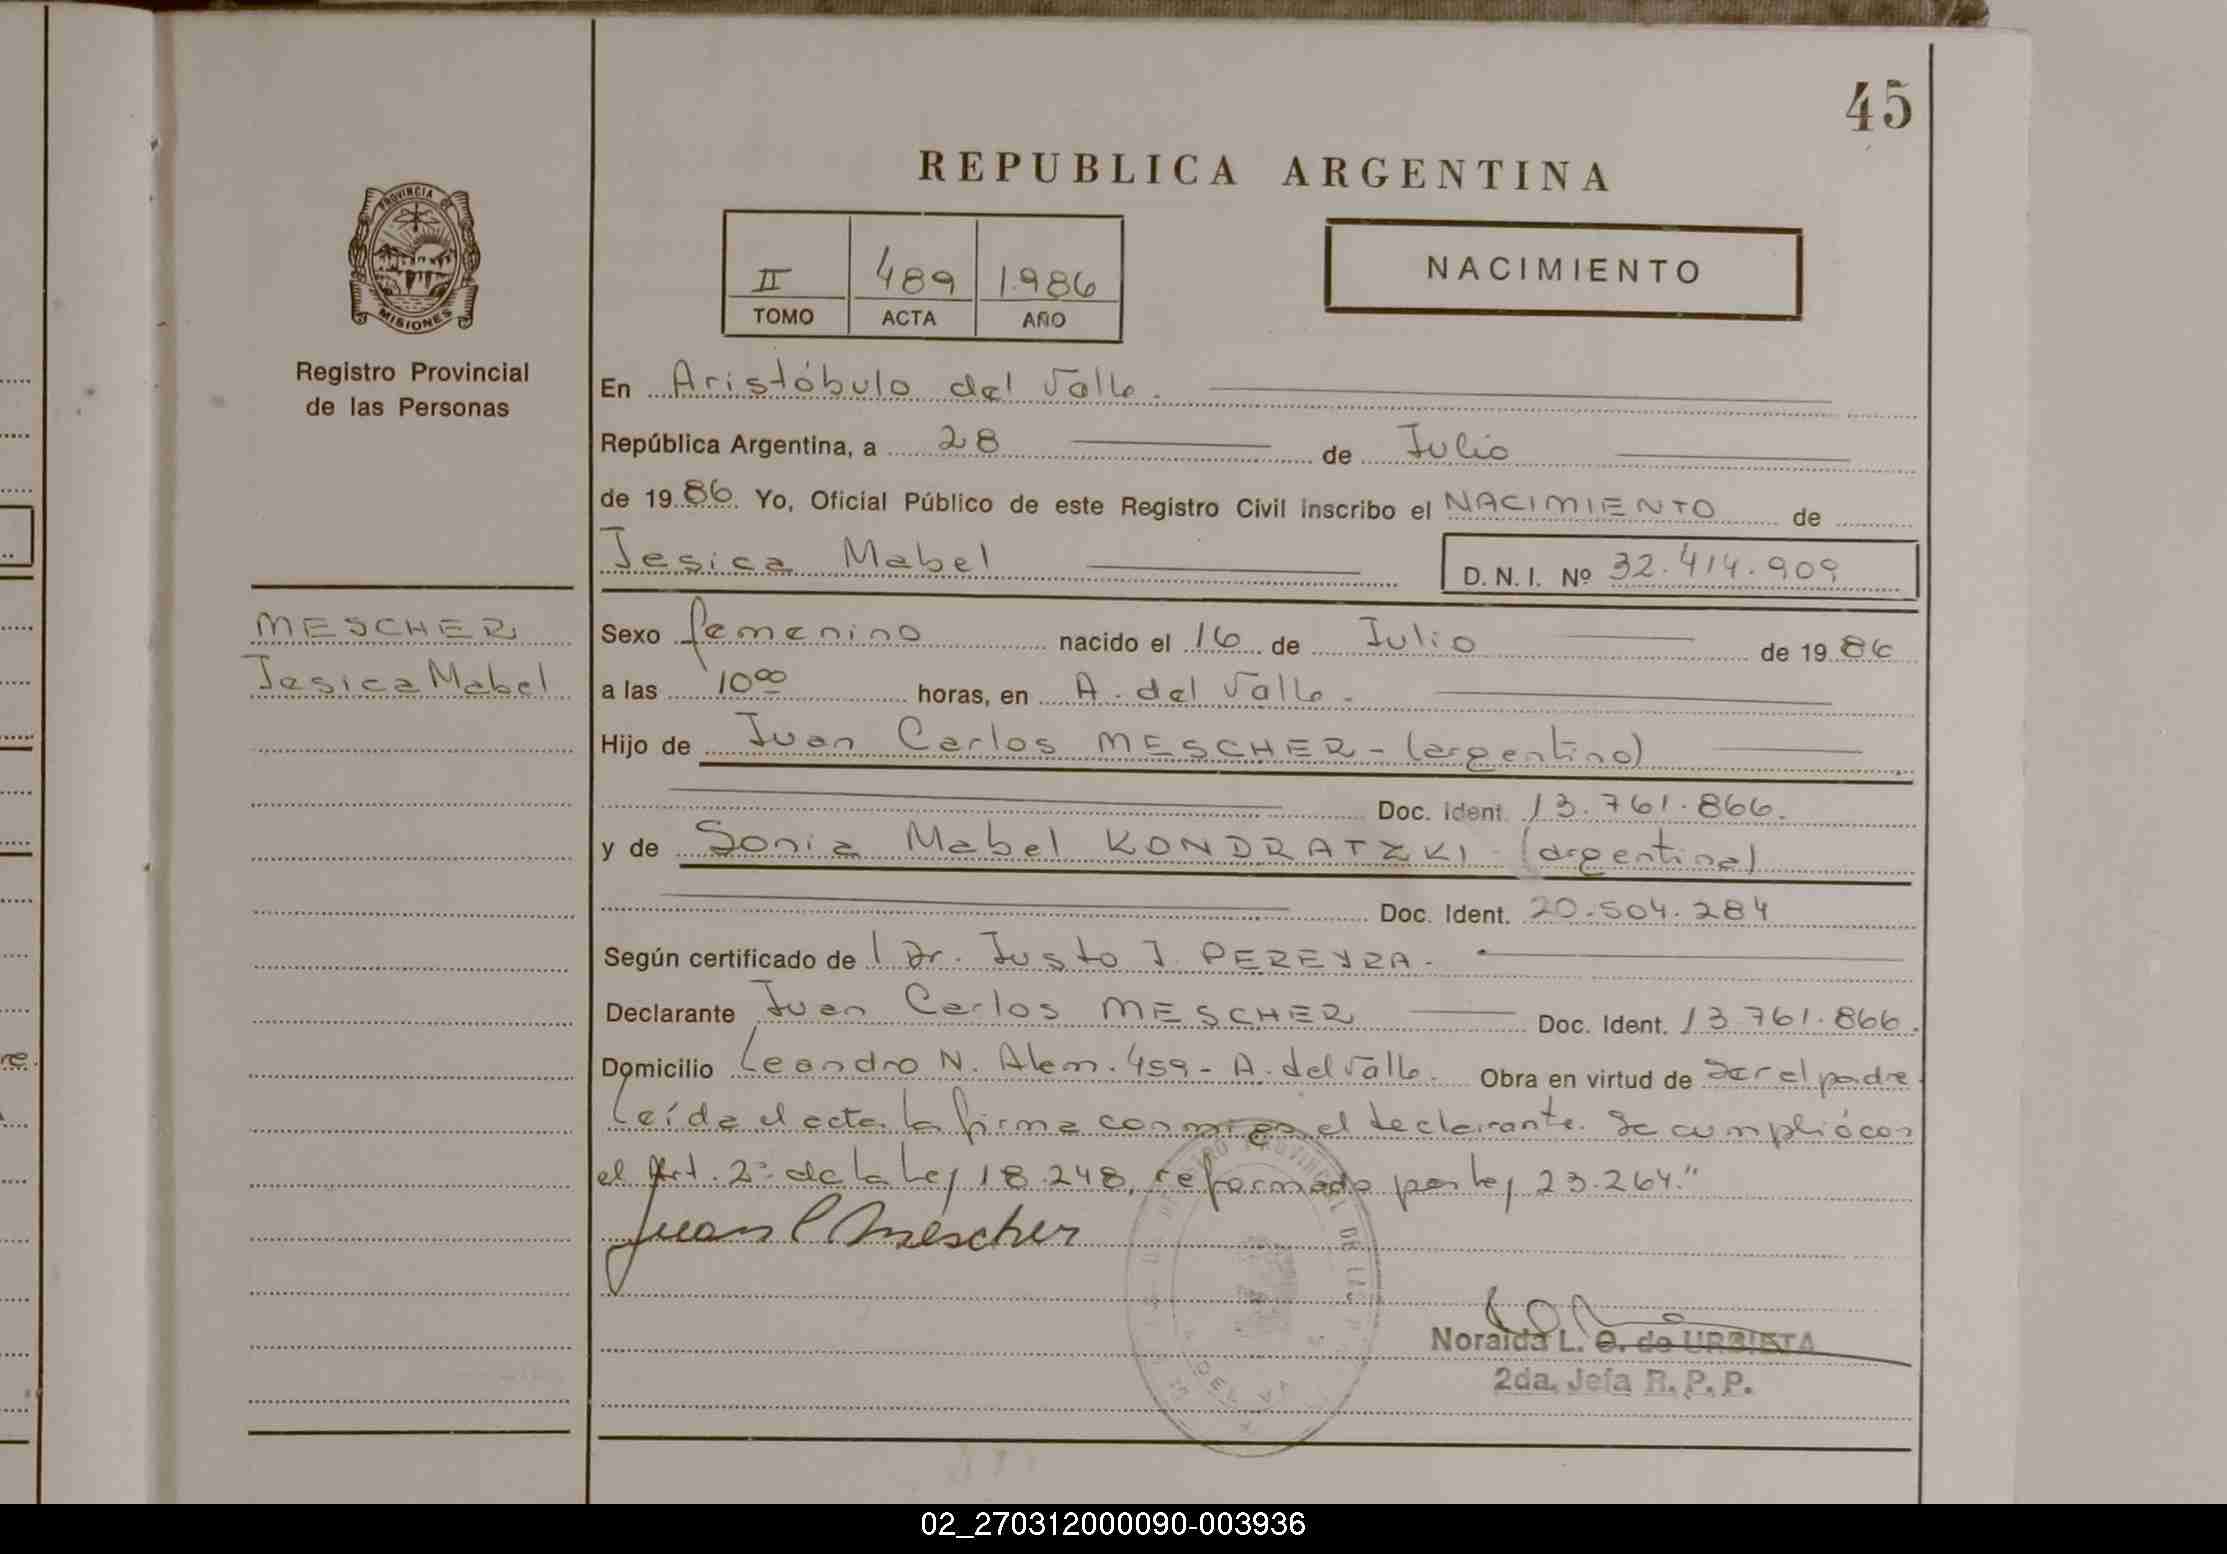 45
REPUBLICA ARGENTINA
PROVINCIA DE
MISIONES
Registro Provincial
de las Personas
II 489 1.986
TOMO ACTA AÑO
NACIMIENTO
En Aristóbulo del Valle.
República Argentina, a 28 de Julio
de 1986. Yo, Oficial Público de este Registro Civil inscribo el NACIMIENTO de
Jesica Mabel D.N.I. Nº 32.414.909
MESCHER
Jesica Mabel
Sexo femenino nacido el 16 de Julio de 1986
a las 10⁰⁰ horas, en A. del Valle.
Hijo de Juan Carlos MESCHER - (argentino)
Doc. Ident. 13.761.866.
y de Sonia Mabel KONDRATZKI - (argentina)
Doc. Ident. 20.504.284
Según certificado de l Dr. Justo J. PEREYRA.
Declarante Juan Carlos MESCHER Doc. Ident. 13.761.866.
Domicilio Leandro N. Alem. 459 - A. del Valle. Obra en virtud de ser el padre
Leída el acta la firma conmigo el declarante. Se cumplió con
el Art. 2º de la Ley 18.248, reformado por ley 23.264."
Juan C Mescher
Noraida L. O. de URBIETA
2da. Jefa R. P. P.
02_270312000090-003936